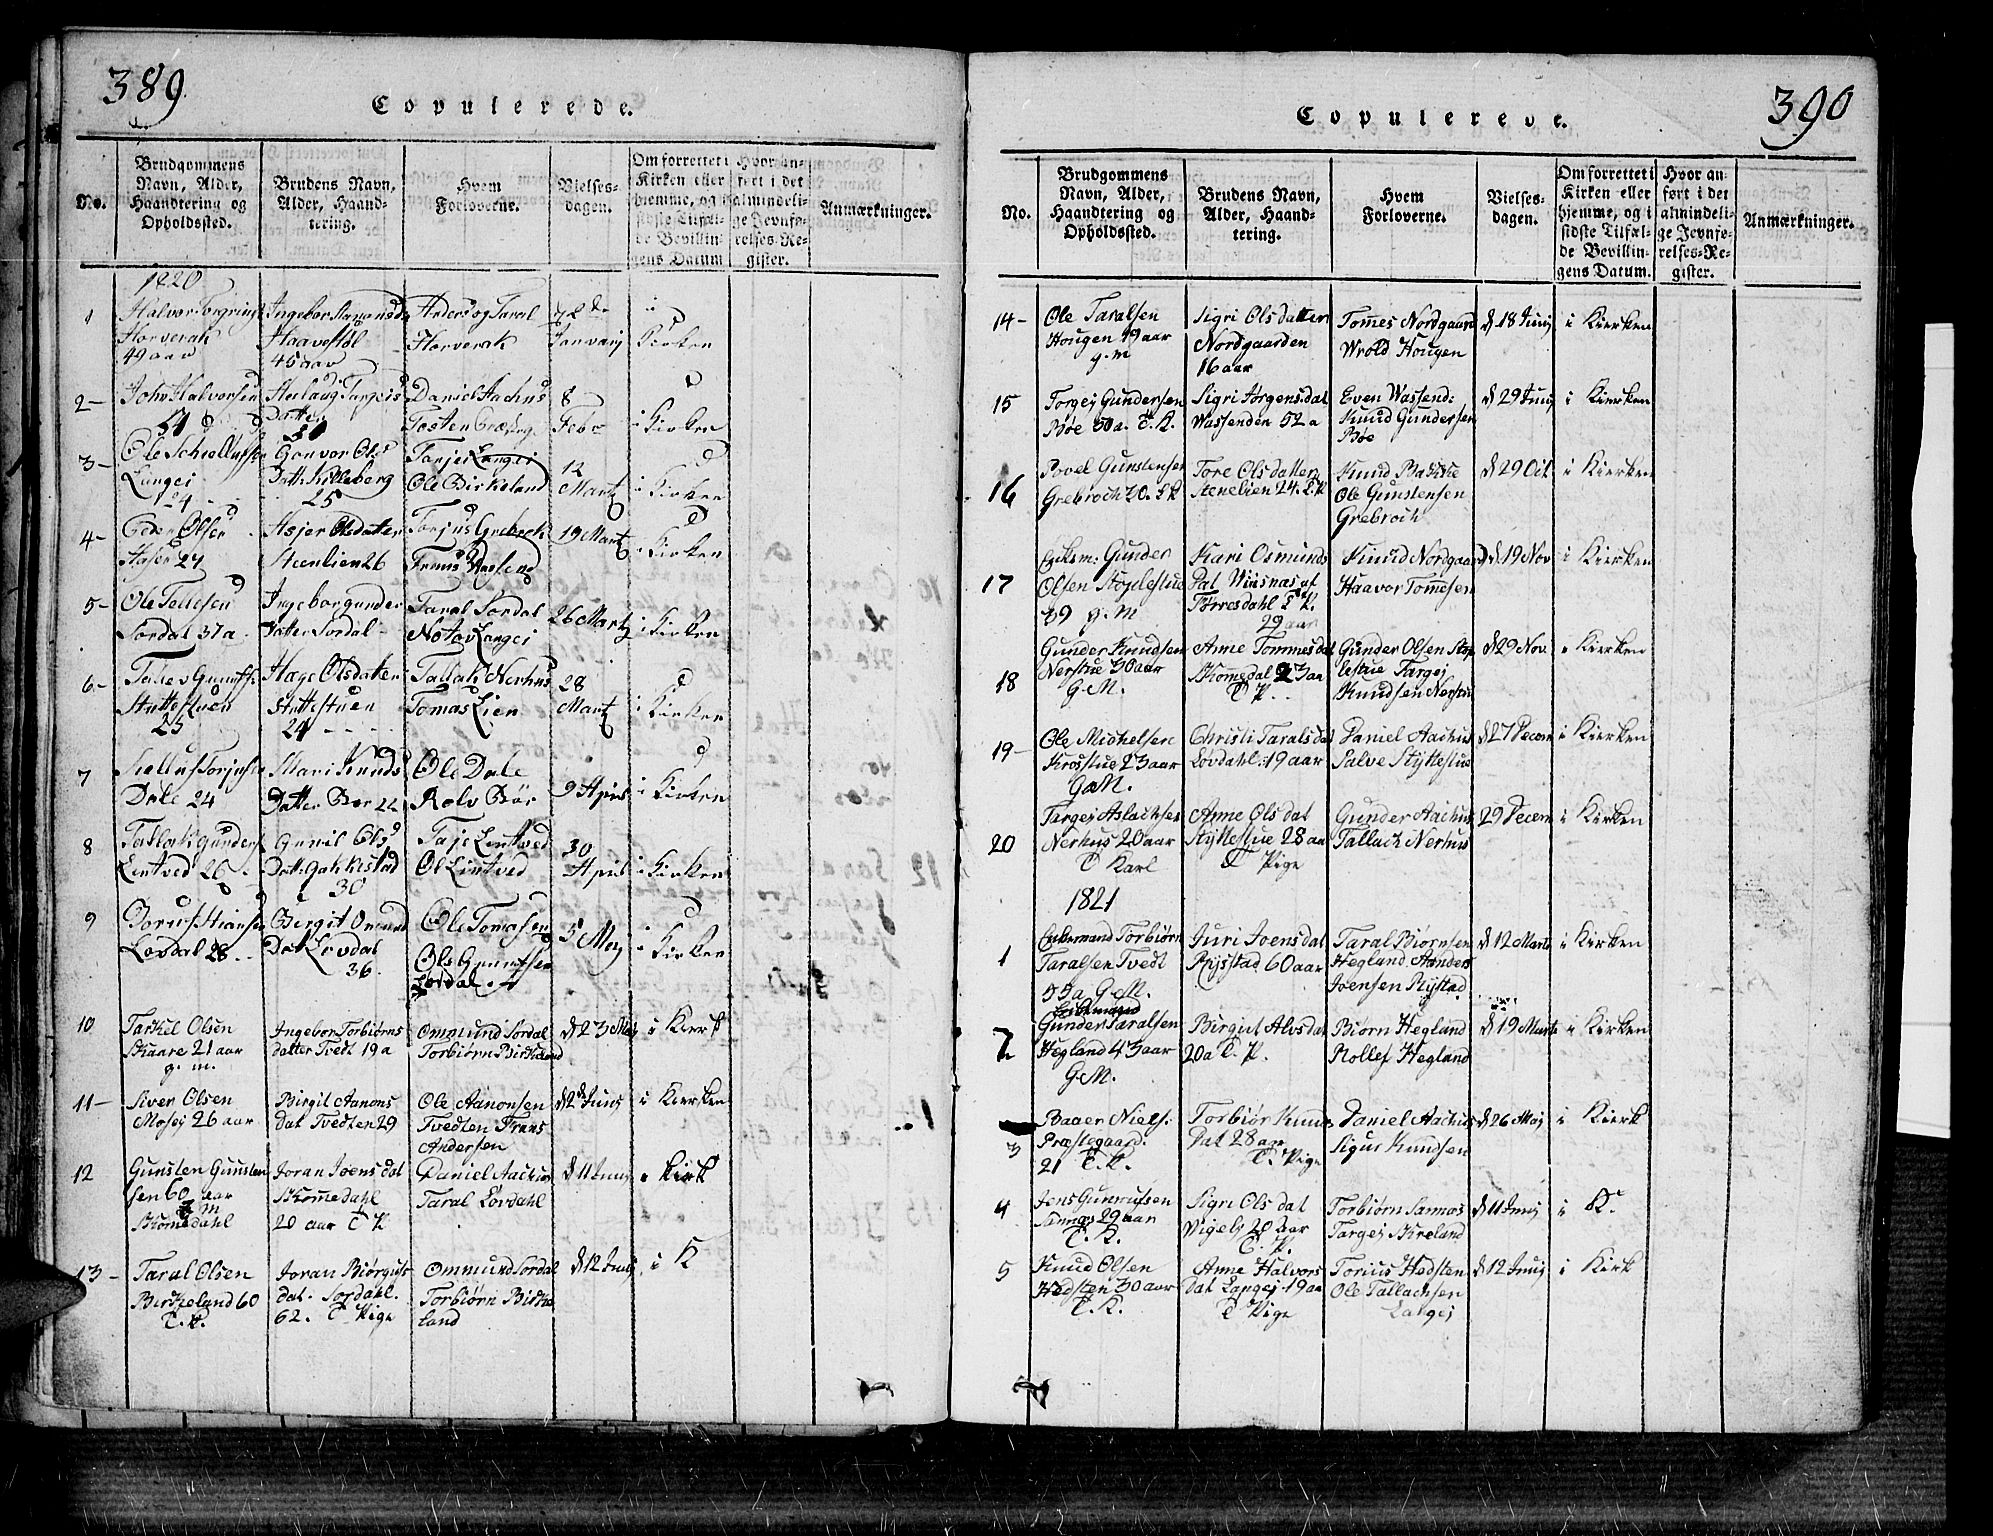 389
Copulerede.
No.
Brudgommens Navn, Alder, Haandtering og Opholdssted.
Brudens Navn, Alder, Haandtering.
Hvem Forloverne.
Vielsesdagen.
Om forrettet i Kirken eller hjemme, og i sidste Tilfælde Bevillingens Datum
Hvor anført i det almindelige Jevnførelses-Register.
Anmærkninger.
1820
1
Horverak
49 aar
Haavestøl
45 aar
Anders og Taral
Horverak
Januarj
i Kirken
2
John Halvorsen
51
Datter
50
Daniel Aachus
8
Febr
i Kirken
3
Langei
24
Gonvor Ols
Datt. Killeberg
25
Langei
Ole Birkeland
12
Martz
i Kirken
4
Peder Olsen
27
Olsdatter
Steenlien 26
19 Martz
i Kirken
5
Ole Tellefsen
Sordal 37 a
Ingebor gunder
Datter Sordal
Taral Sordal
Notov Langei
26 Martz
i Kirken
6
Stuttestuen
25
Hæge Olsdatter
Stuttestuen
24
Tallak Nerhus
Tomas Lien
28
Martz
i Kirken
7
Dale 24
Mari Knuds
Datter Bør 22
Ole Dale
Rolv Bör
9 April
i Kirken
8
Lintved 26
Gunil Ols
30
Taje Lintved
Ol Lintved
30
April
i Kirken
9
Lovdal 28
Bergit Omund
Dat Lovdal
36
Ole Tomasen
Ols Gunufsen
Lovdal
5 Mey
i Kirken
10
Tarkel Olsen
Skaare 21 aar
g. m.
Ingebor Torbiørns
datter Tvedt 19 a
Ommund Sordal
Torbiørn Birkeland
d 23 Mej
i Kierk
11
Siver Olsen
Mosej 26 aar
Birgit Aanons
dat Tvedten 29
Ole Aanonsen
Tvedten Frans
Andersen
d 2 Junj
i Kiersken
12
Gunsten Gunsten
sen 60 aar
Skomedahl
Joran Joens dat
Skomedahl
20 aar T P
Daniel Aachus
Taral Løvdahl
d 11 Junj
i Kirk
13
Taral Olsen
Birkeland 60
T. K.
Joran Biørguls
dat. Sordahl.
62. T Pige
Ommund Sordal
Torbiørn Birke
land
d 12 Junj
i K
390
Copulerede.
No.
Brudgommens Navn, Alder, Haandtering og Opholdssted.
Brudens Navn, Alder, Haandtering.
Hvem Forloverne.
Vielsesdagen.
Om forrettet i Kirken eller hjemme, og i sidste Tilfælde Bevillingens Datum.
Hvor anført i det almindelige Jevnførelses-Register.
Anmærkninger.
14
Ole Taralsen
Hougen 19 aar
g. m
Sigri Olsdatter
Nordgaarden
16 aar
Tomes Nordgaard
Wrold Hougen
d 18 Junj
i Kierken
15
Torgej Gundersen
Bøe 50 a. T. K.
Sigri Jørgensdat
Wassenden 52 a
Even Wassend:
Knud Gundersen
Bøe
d 29 Junj
i Kierken
16
Povel Gunstensen
Grebroch 20.
Tore Olsdatter
Stenelien 24.
Knud Bakke
Ole Gunstensen
Grebroch
d 29 Oct
i Kierken
17
Enkem: Gunder
Olsen Støplestue
39 g. M
Kari Osmunds
Dat Winsnas af
Torresdahl
29 aar
Knud Nordgaard
Haavor Tomesen
d 19 Nov
i Kierken
18
Gunder Knudsen
Nerstue 30 aar
G. M.
Anne Tommesdat
Skomedal 23 aa
T P.
Gunder Olsen Støp
lestue Targej
Knudsen Nerstue
d 29 Nov.
i Kierken
19
Ole Michelsen
Krosstue 23 aar
G. M.
Christi Taralsdat
Løvdahl: 19 aar
Daniel Aachus
Salve Stykestue
d 27 Decem
i Kierken
20
Targej Aslachsen
Nerhus 20 aar
T Karl
Anne Ols dat
Stykestue 28 aa
T Pige
Gunder Aachus
Tallach Nerhus
29 Decem
i Kierken
1821
1
Enkemand Torbiørn
Taralsen Tvedt
55 a G. M.
Juri Joensdat
Rysstad 60 aar
Taral Biørnsen
Hegland. Aanders
Joensen Rystad
d 12 Marts
i Kirken
2
Enkemand
Gunder Taralsen
Hegland 43 aar
G. M.
Birgit Alvsdat
20 a T. P.
Biørn Hegland
Rollef Hegland
d 19 Marts
i Kirken
3
Baaer Niels:
Præstegaard.
21 T. K.
Torbiør Knuds
Dat 28 aar
T. Pige
Daniel Aachus
Sigur Knudsen
d 26 Maj
i Kierk
4
Jens Gunnufsen
Sannas 29 aar
T. K.
Sigri Ols dat
Vigely 20 aar
T. P.
Torbiørn Sannas
Targej
d 11 Junj
i K.
5
Knud Olsen
Hedsten 30 aar
T. K.
Anne Halvors
Dat Langej 19 aa
T Pige
Torius Hedsten
Ole Tallachsen
Langej
d 12 Junj
i Kirk